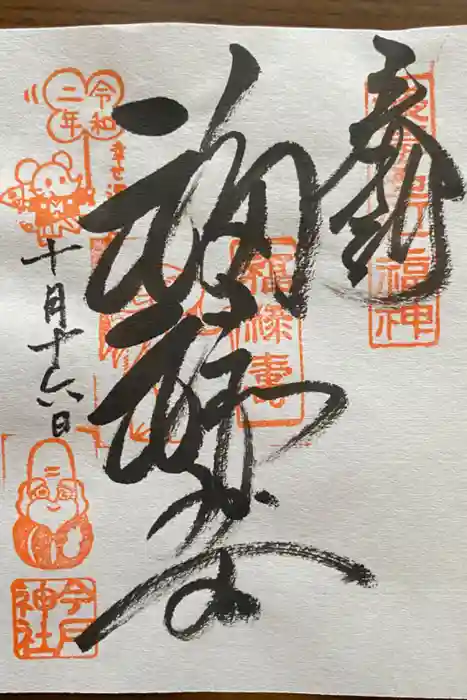 奉拝
福神
福禄寿
福禄壽
令和
二年
幸せ
十月十六日
今戸
神社